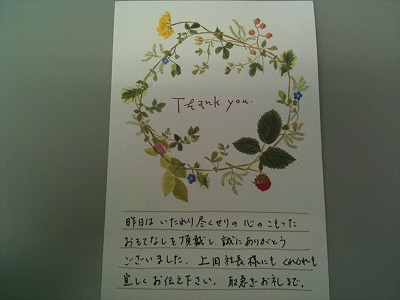 Thank you.
昨日は いたれり尽くせりの 心のこもった
おもてなしを頂戴し、誠にありがとう
ございました。上田社長様にも くれぐれも
宜しくお伝え下さい。取急ぎお礼まで。